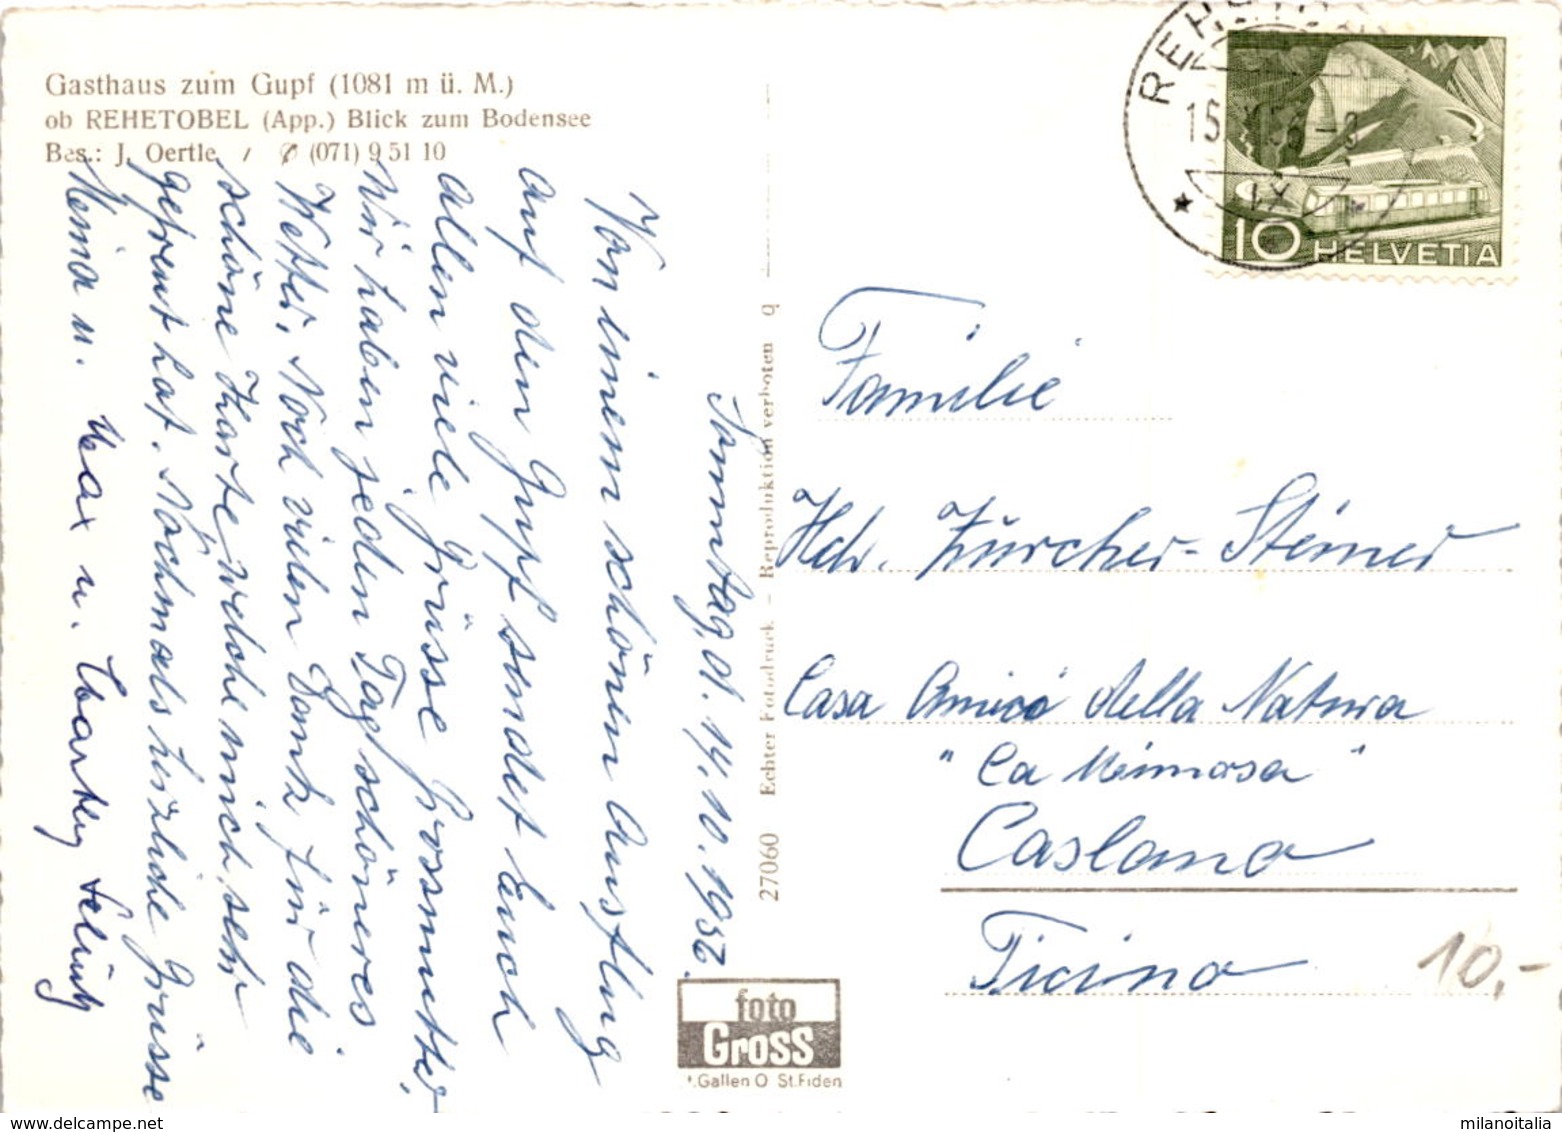 Gasthaus zum Gupf (1081 m ü. M.)
ob REHETOBEL (App.) Blick zum Bodensee
Bes.: J. Oertle / ✆ (071) 9 51 10
Sonntag, d. 14. 10. 1952.
Von einem schönen Ausflug
auf den Gupf sendet Euch
allen viele Grüsse Grossmutter,
Wir haben jeden Tag schöneres
Wetter. Noch vielen Dank für die
schöne Karte welche mich sehr
gefreut hat. Nochmals herzliche Grüsse
Meina u. Max u.
27060 Echter Fotodruck – Reproduktion verboten q
foto
Gross
St.Gallen O St.Fiden
15
IX
10 HELVETIA
Familie
Hch. Zürcher-Steiner
Casa Amici della Natura
"La Mimosa"
Caslano
Ticino
10.-
milanoitalia